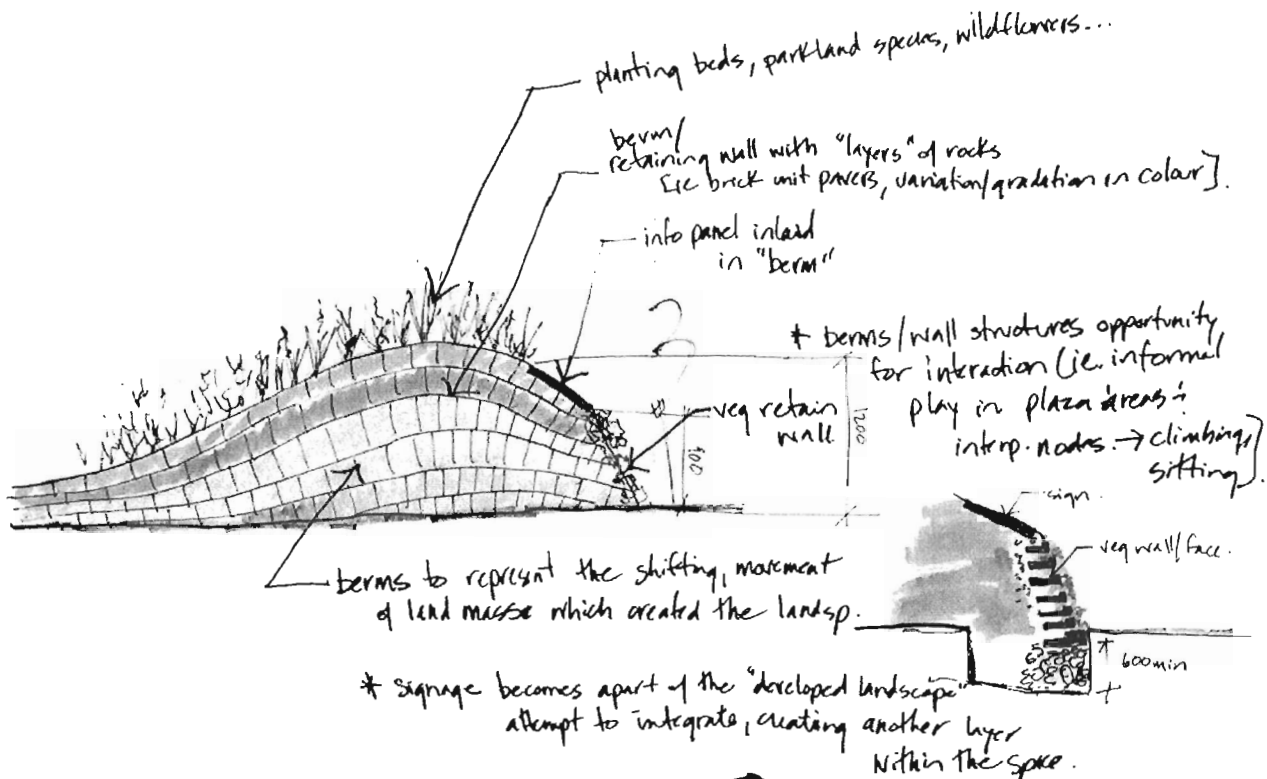 planting beds, parkland species, wildflowers...
berm/
retaining wall with "layers" of rocks
[ie brick unit pavers, variation/gradation in colour].
info panel inlaid
in "berm"
* berms/wall structures opportunity
for interaction (ie. informal
play in plaza areas +
interp. nodes. → climbing,
sitting)
veg retain
wall
1200
900
sign.
veg wall/face.
berms to represent the shifting, movement
of land masse which created the landsp.
600min
* signage becomes apart of the "developed landscape"
attempt to integrate, creating another layer
within the space.